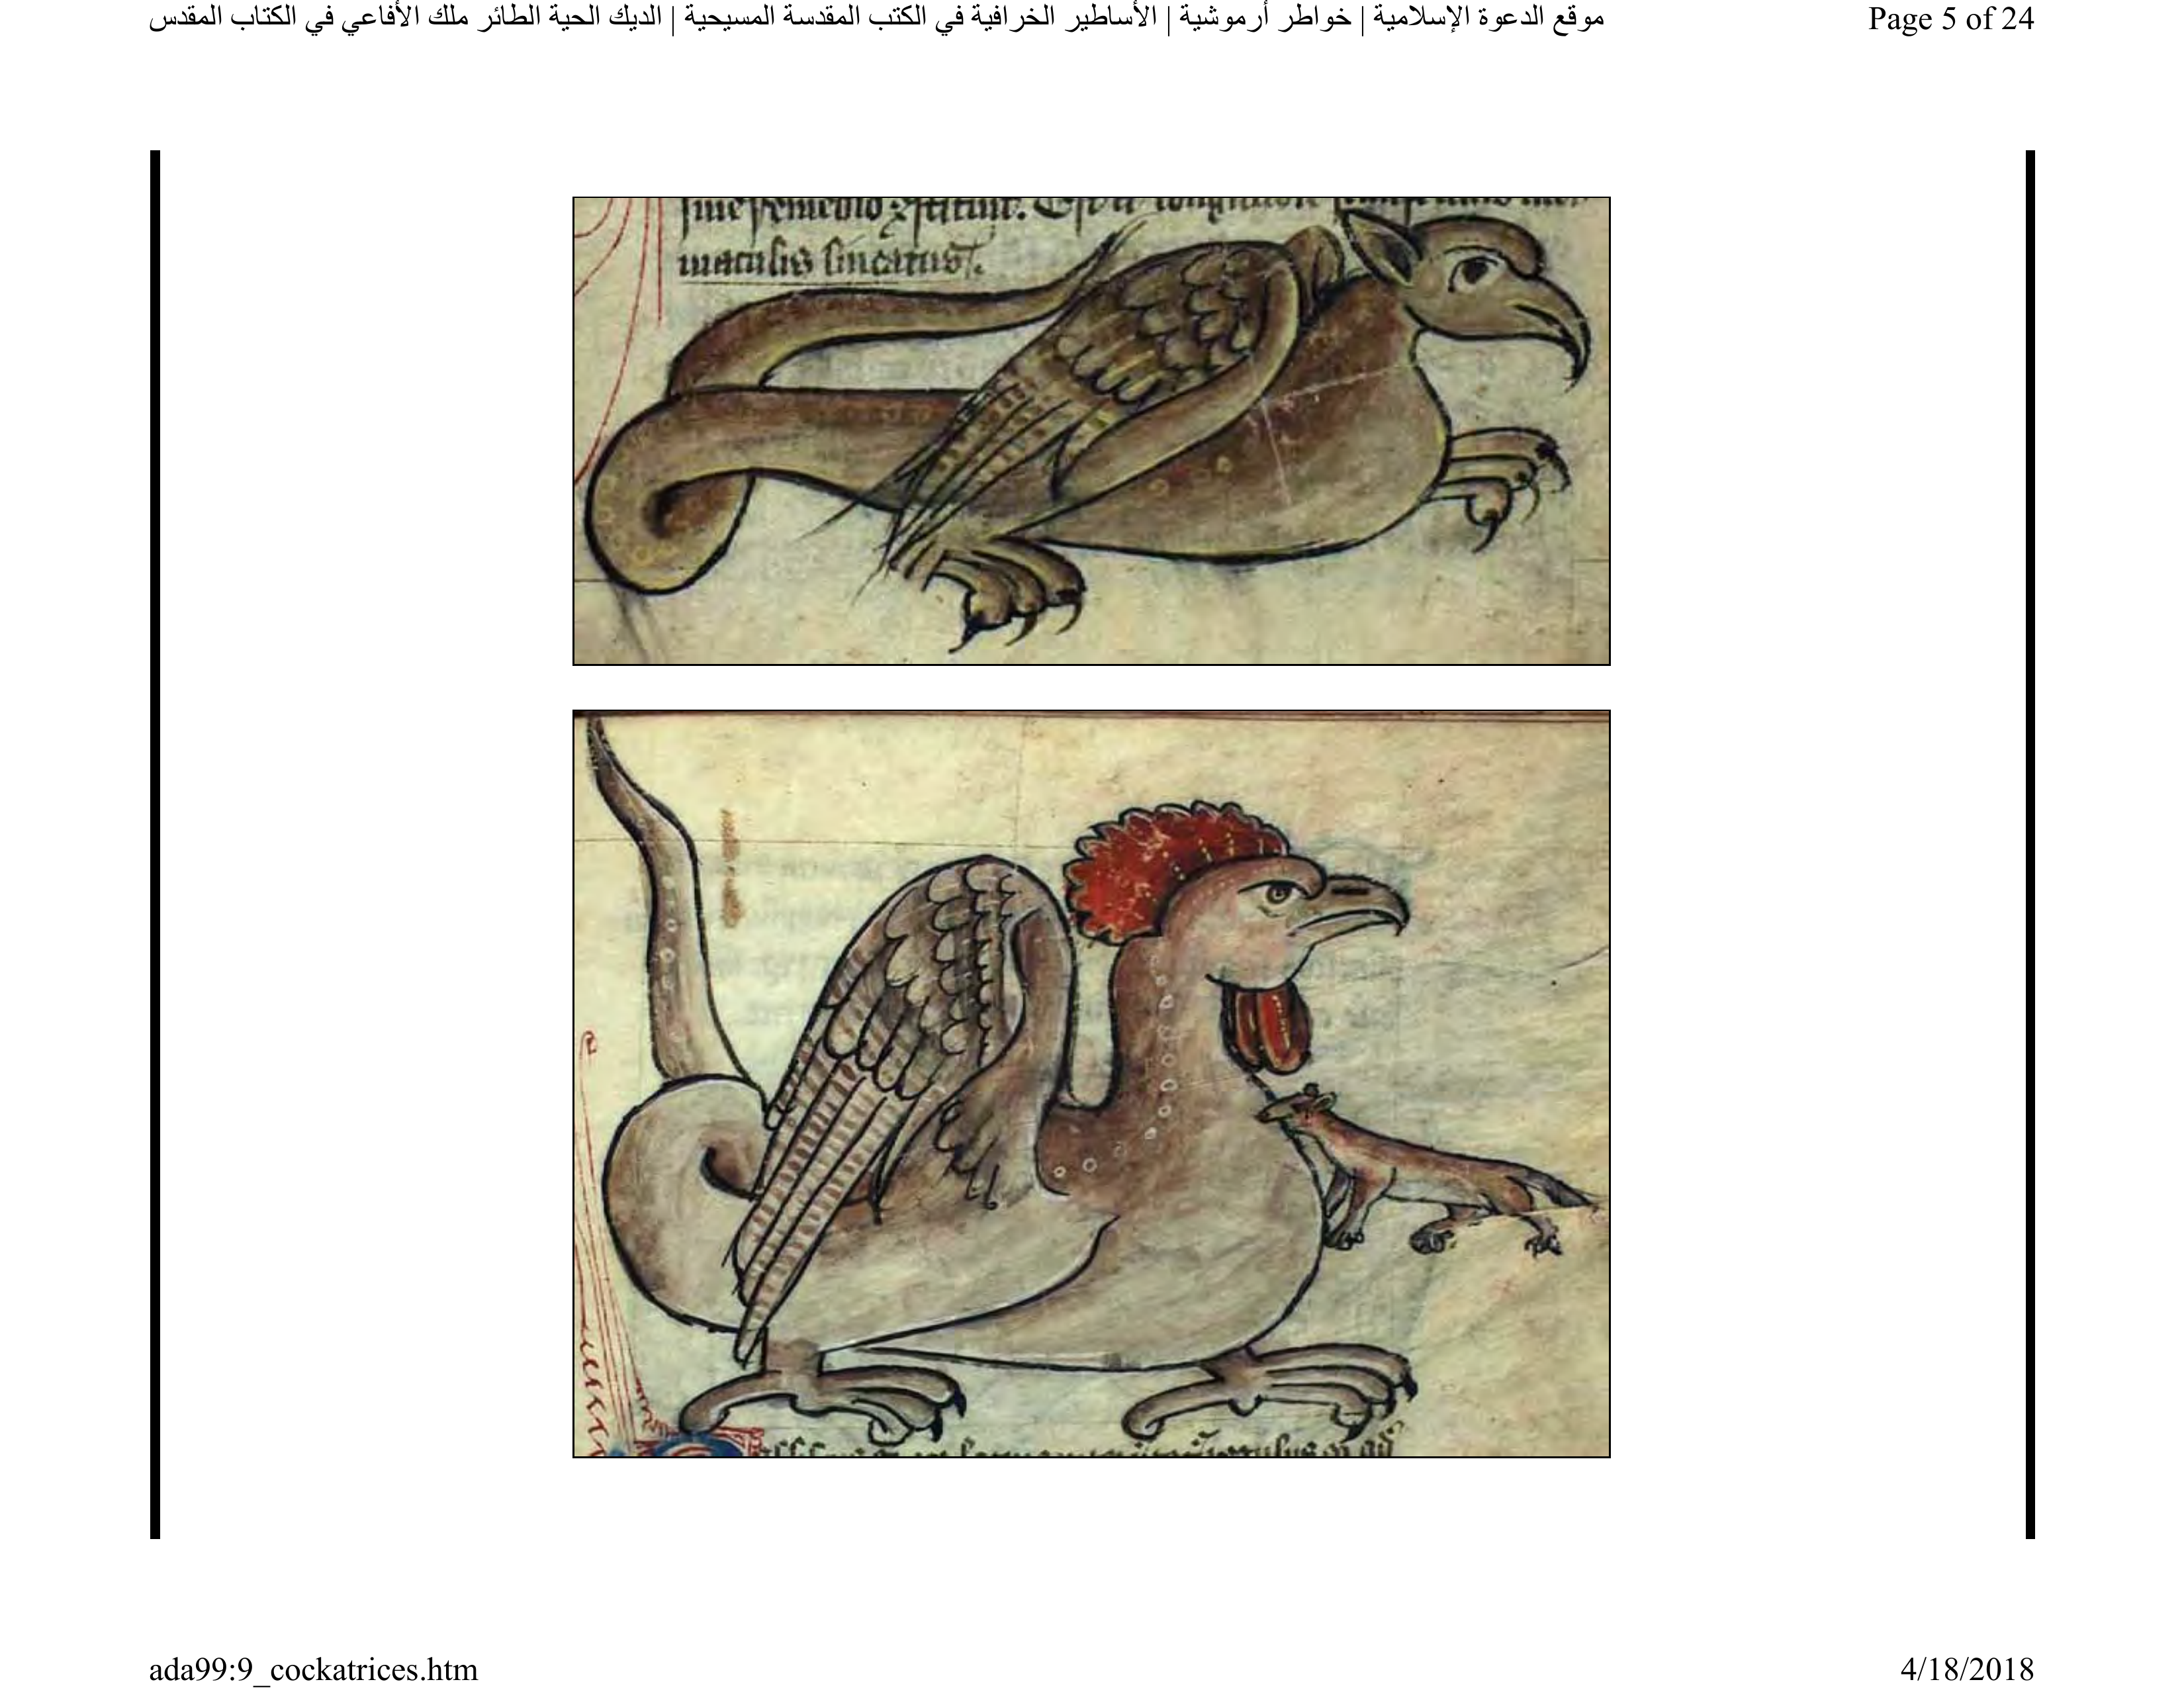 موقع الدعوة الإسلامية | خواطر أرموشية | الأساطير الخرافية في الكتب المقدسة المسيحية | الديك الحية الطائر ملك الأفاعي في الكتاب المقدس
Page 5 of 24
maculis lineatus.
ada99:9_cockatrices.htm
4/18/2018